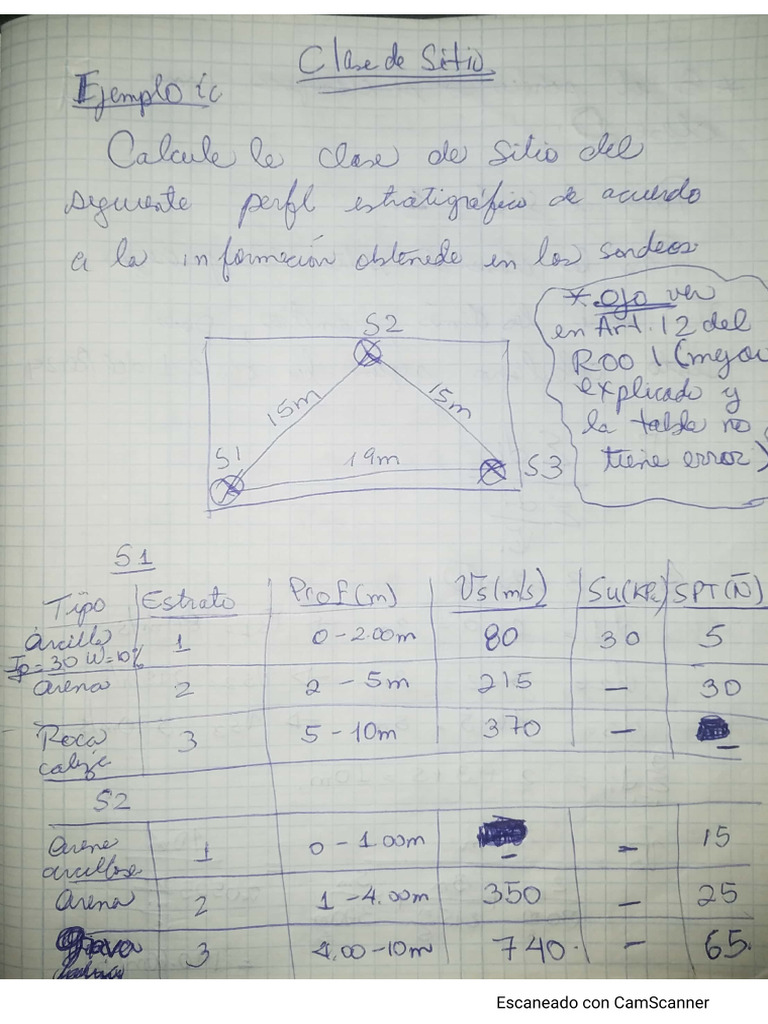 Clase de Sitio
Ejemplo ic
Calcule la clase de sitio del
siguiente perfil estratigráfico de acuerdo
a la información obtenida en los sondeos
* Ojo ver
en Art. 12 del
R001 (mejor
explicado y
la tabla no
tiene error)
S2
15m
15m
S1
19m
S3
S1
Tipo Estrato Prof(m) Vs(m/s) Su(KPa) SPT(N̄)
arcilla 1 0-2.00m 80 30 5
Ip=30 W=10%
arena 2 2-5m 215 - 30
Roca 3 5-10m 370 - -
caliza
S2
Arena 1 0-1.00m - - 15
arcillosa
arena 2 1-4.00m 350 - 25
Grava 3 4.00-10m 740. - 65.
Escaneado con CamScanner